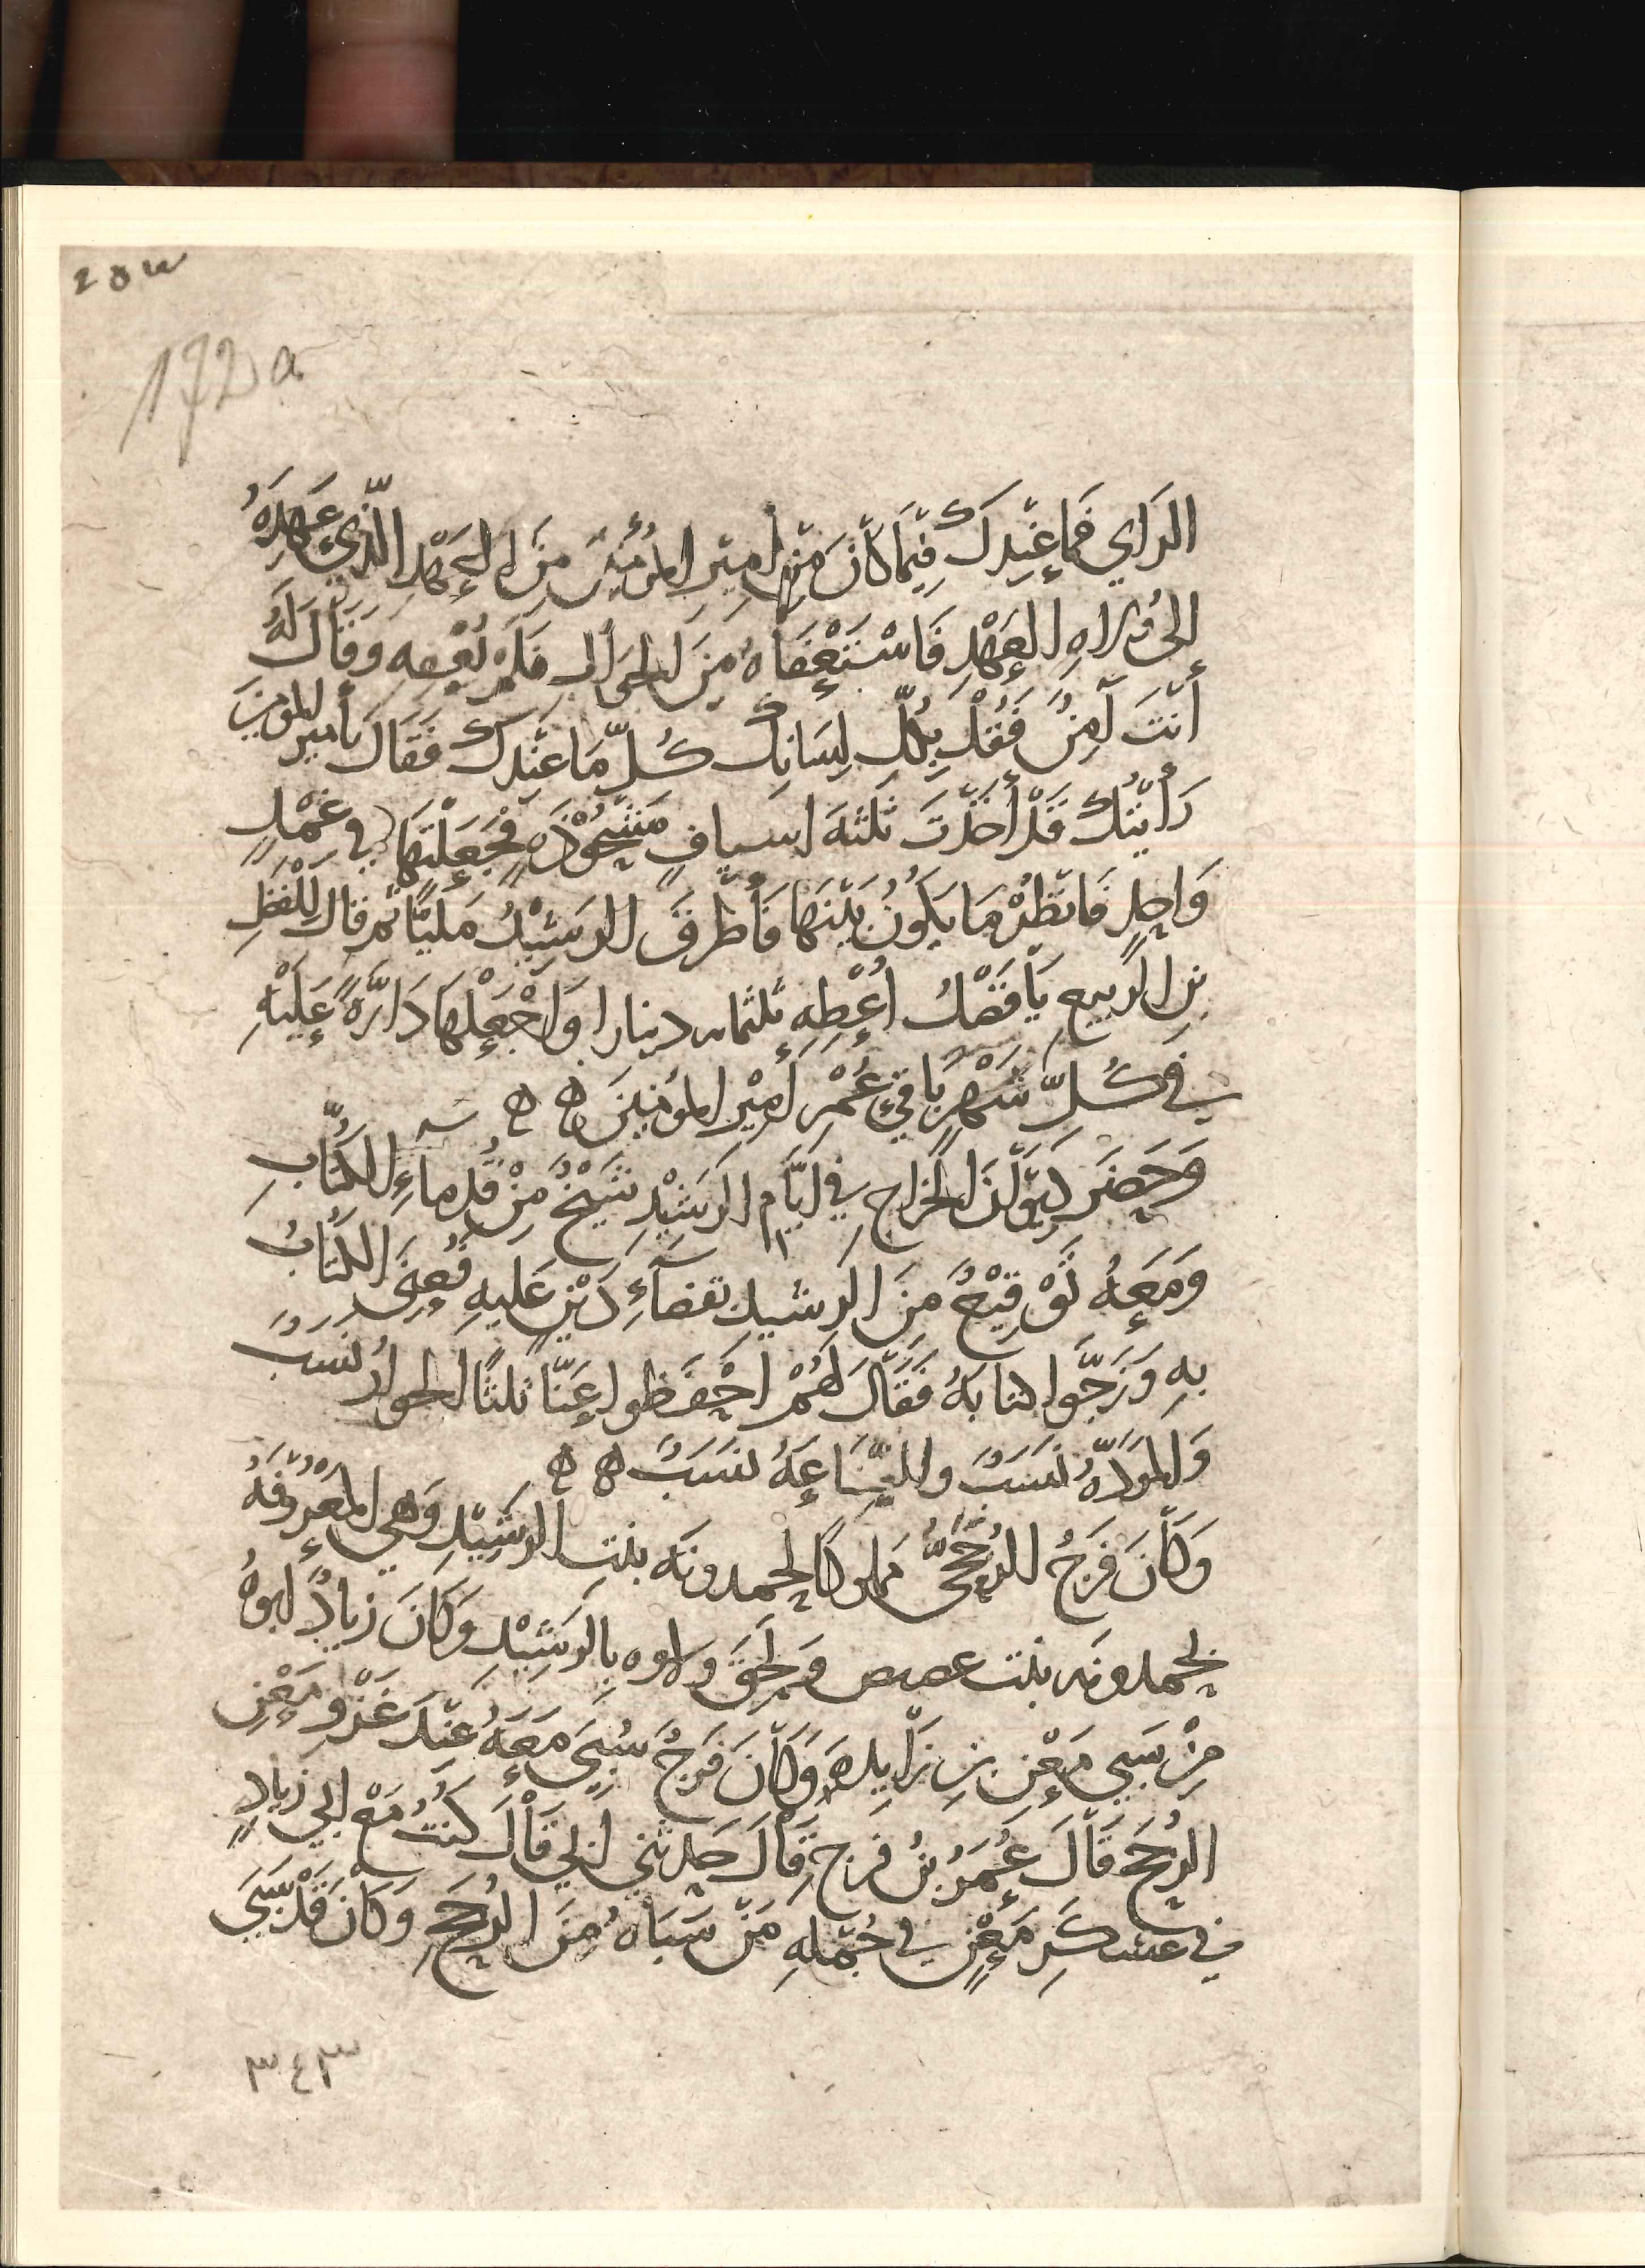 253
172 a
الرَأي فَمَا عِنْدَكَ فِيْمَا كَانَ مِن أَمِيْرِ المُؤْمِنِيْنَ مِنَ العَهْدِ الَّذِي عَهِدَهُ
إلى وُلاهِ العَهْدِ فَاسْتَعْفَاهُ مِنَ الجَوَاب فَلَمْ يُعْفِه وَقَالَ لَهُ
أَنْتَ آمِنٌ فَقُلْ بِكُلّ لِسَانِكَ كُلّ مَا عِنْدَكَ فَقَالَ يَا أمير المؤمنين
رَأَيْتُكَ قَدْ أَخَذْتَ ثَلثهَ اسيافٍ مَشْحُوْذَهٍ فَجَعَلْتَهَا فِي غِمْدٍ
وَاحِدٍ فَانْظُرْ مَا يَكُونُ بَيْنَهَا فَأَطْرَقَ الرَشِيْدُ مَلِيًّا ثم قال لِلْفَضْلِ
بنِ الرَبيعِ يَا فَضْلُ أُعْطِهِ ثلثمائه دينارا وَاجْعَلْهَا دَارَّهً عَلَيْهِ
فِي كُلِّ شَهْرٍ بَاقِيَ عُمْرِ أَمِيْرِ المؤمنينَ ه ه
وَحَضَرَ دِيْوَانَ الخَراجِ فِي أيَّامِ الرَشِيْدِ شَيْخٌ مِنْ قُدماءِ الكُتَّابِ
وَمَعَهُ تَوْقِيْعٌ مِنَ الرشيدِ بقضآءِ دَيْنٍ عَلَيهِ فَعُنِىَ الكُتَّابُ
بِهِ وَزَجَّوا كتابَهُ فَقَالَ لَهُمْ احْفَظوا عَنِّا ثلثًا الجوارُ نَسَبٌ
وَالمَوَدَّهُ نَسَبٌ والصِّنَاعَهُ نَسَبٌ ه ه
وَكَانَ فَرَجُ الرُخَّجِيُّ مَملوكًا لحمدونَه بنتِ الرَشِيْدِ وَهِي المَعْرُوفَهُ
بحمدونه بنت عصيص وَلحِقَ ولاوه بِالرَشِيْدِ وَكَانَ زيادٌ ابوهُ
مِنْ سَبي مَعْنِ بنِ زَايِدهَ وَكَانَ فَرَجٌ سُبِيَ مَعَهُ عِنْدَ غَزْوِ مَعْنٍ
الرُخَّجَ قَالَ عُمَرُ بنُ فَرَجٍ قَالَ حَدثني أَبِي قَالَ كُنْتُ مَعْ ابي زِيادٍ
فِي عَسْكَرِ مَعْنٍ فِي جُمْلهِ مَنْ سَبَاهُ مِنَ الرُخَّجِ وَكَانَ قَدْ سَبَى
٣٤٣